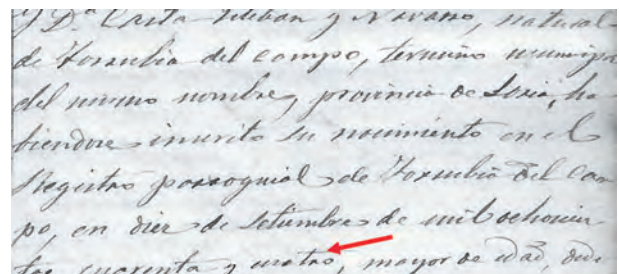 y D.ª Crista Esteban y Navarro, natural
de Torrubia del Campo, termino municipa
del mismo nombre, provincia de Soria, ha
biendose inscrito su nacimiento en el
Registro parroquial de Torrubia del Cam
po, en diez de Setiembre de mil ochocien
tos cuarenta y cuatro, mayor de edad, dedi